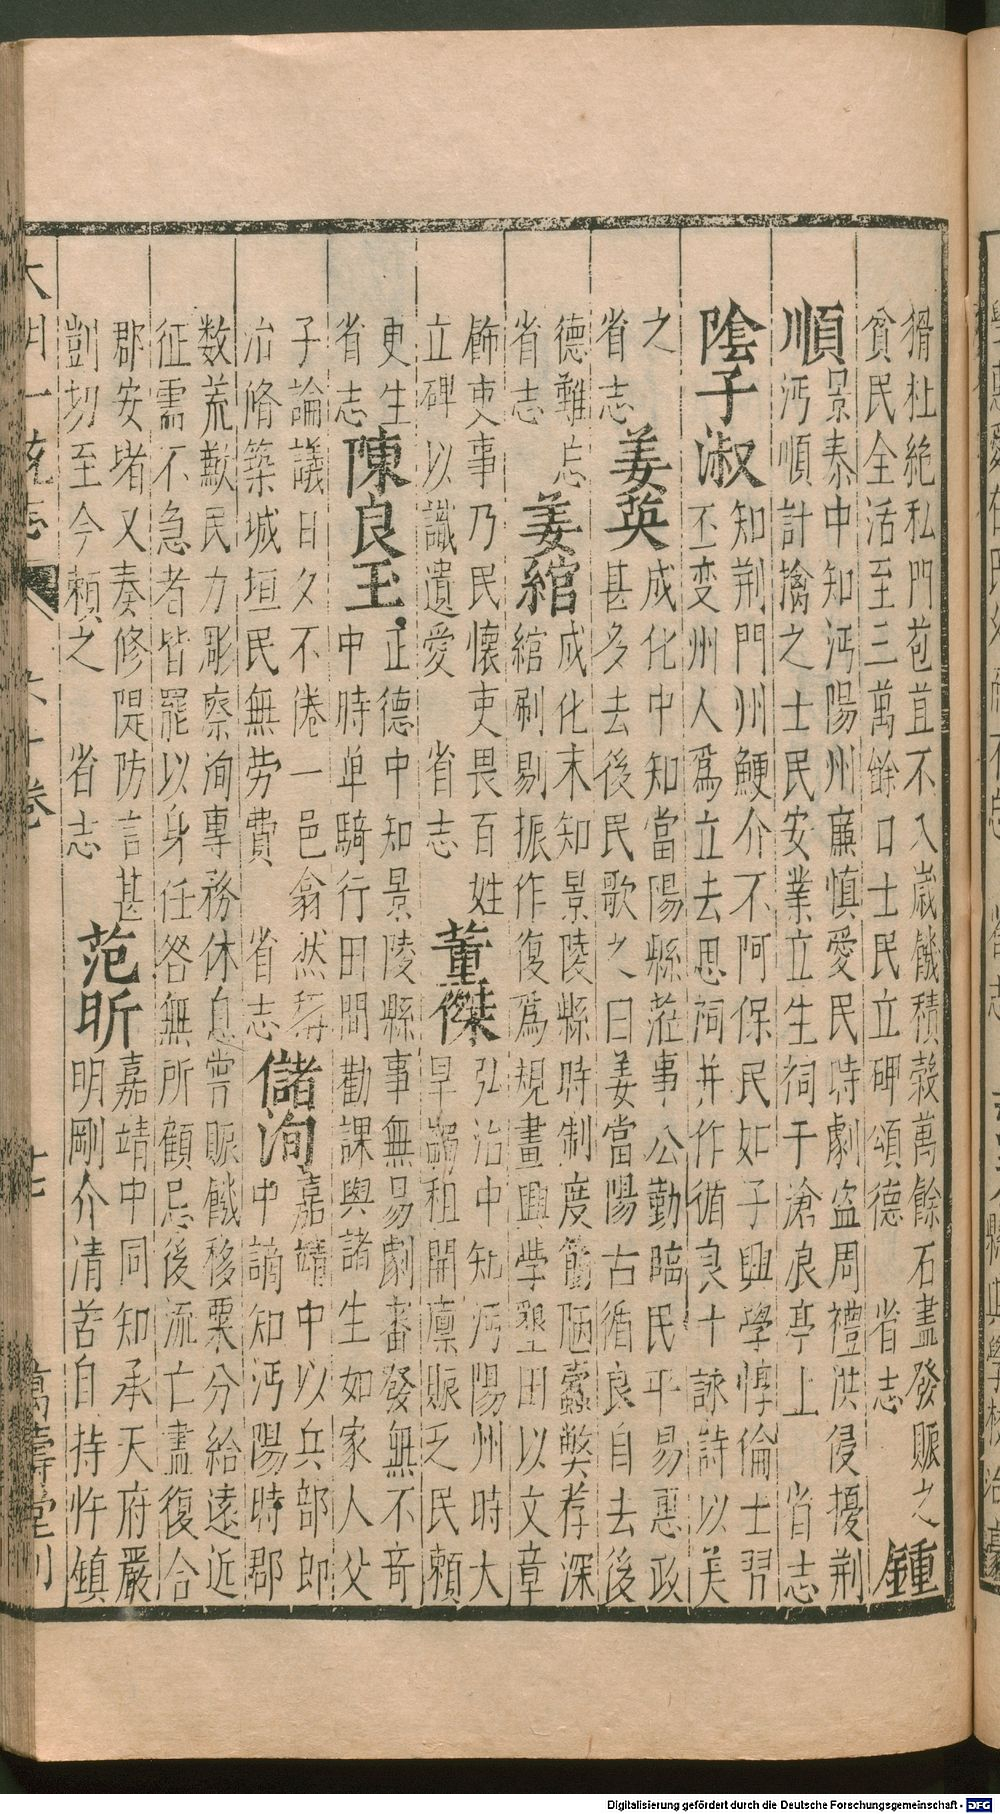 猾杜絶私門苞苴不入歲饑積榖萬餘石盡發賑之
貧民全活至三萬餘口士民立碑頌德 省志 鍾
順 景泰中知沔陽州廉慎愛民時劇盗周禮洪侵擾荆
沔順計擒之士民安業立生祠于滄浪亭上 省志
陰子淑 知荆門州鯁介不阿保民如子興學惇倫士習
丕变州人爲立去思祠并作循良十詠詩以美
之
省志 姜英 成化中知當陽縣蒞事公勤臨民平易惠政
甚多去後民歌之曰姜當陽古循良自去後
德難忘
省志 姜綰 成化末知景陵縣時制度簡陋蠹獘荐深
綰刷剔振作復爲規畫興學墾田以文章
飾吏事乃民懷吏畏百姓
立碑以識遺愛 省志 董傑 弘治中知沔陽州時大
旱蠲租開廪賑乏民賴
更生
省志 陳良玉 正德中知景陵縣事無易劇審發無不竒
中時单騎行田間勸課與諸生如家人父
子論議日夕不倦一邑翕然稱
治脩築城垣民無劳費 省志 儲洵 嘉靖中以兵部郎
中謫知沔陽時郡
数荒歉民力彫瘵洵專務休息嘗賑饑移粟分給遠近
征需不急者皆罷以身任咎無所顧忌後流亡盡復合
郡安堵又奏修隄防言甚
剴切至今賴之 省志 范昕 嘉靖中同知承天府嚴
明剛介清苦自持忤鎮
大明一統志 六十卷 萬壽堂刊
Digitalisierung gefördert durch die Deutsche Forschungsgemeinschaft - DFG